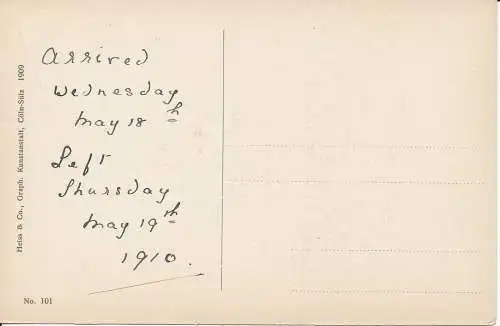 Arrived
Wednesday
May 18th
Left
Thursday
May 19th
1910.
Heiss & Co., Graph. Kunstanstalt, Cöln-Sülz 1909
No. 101